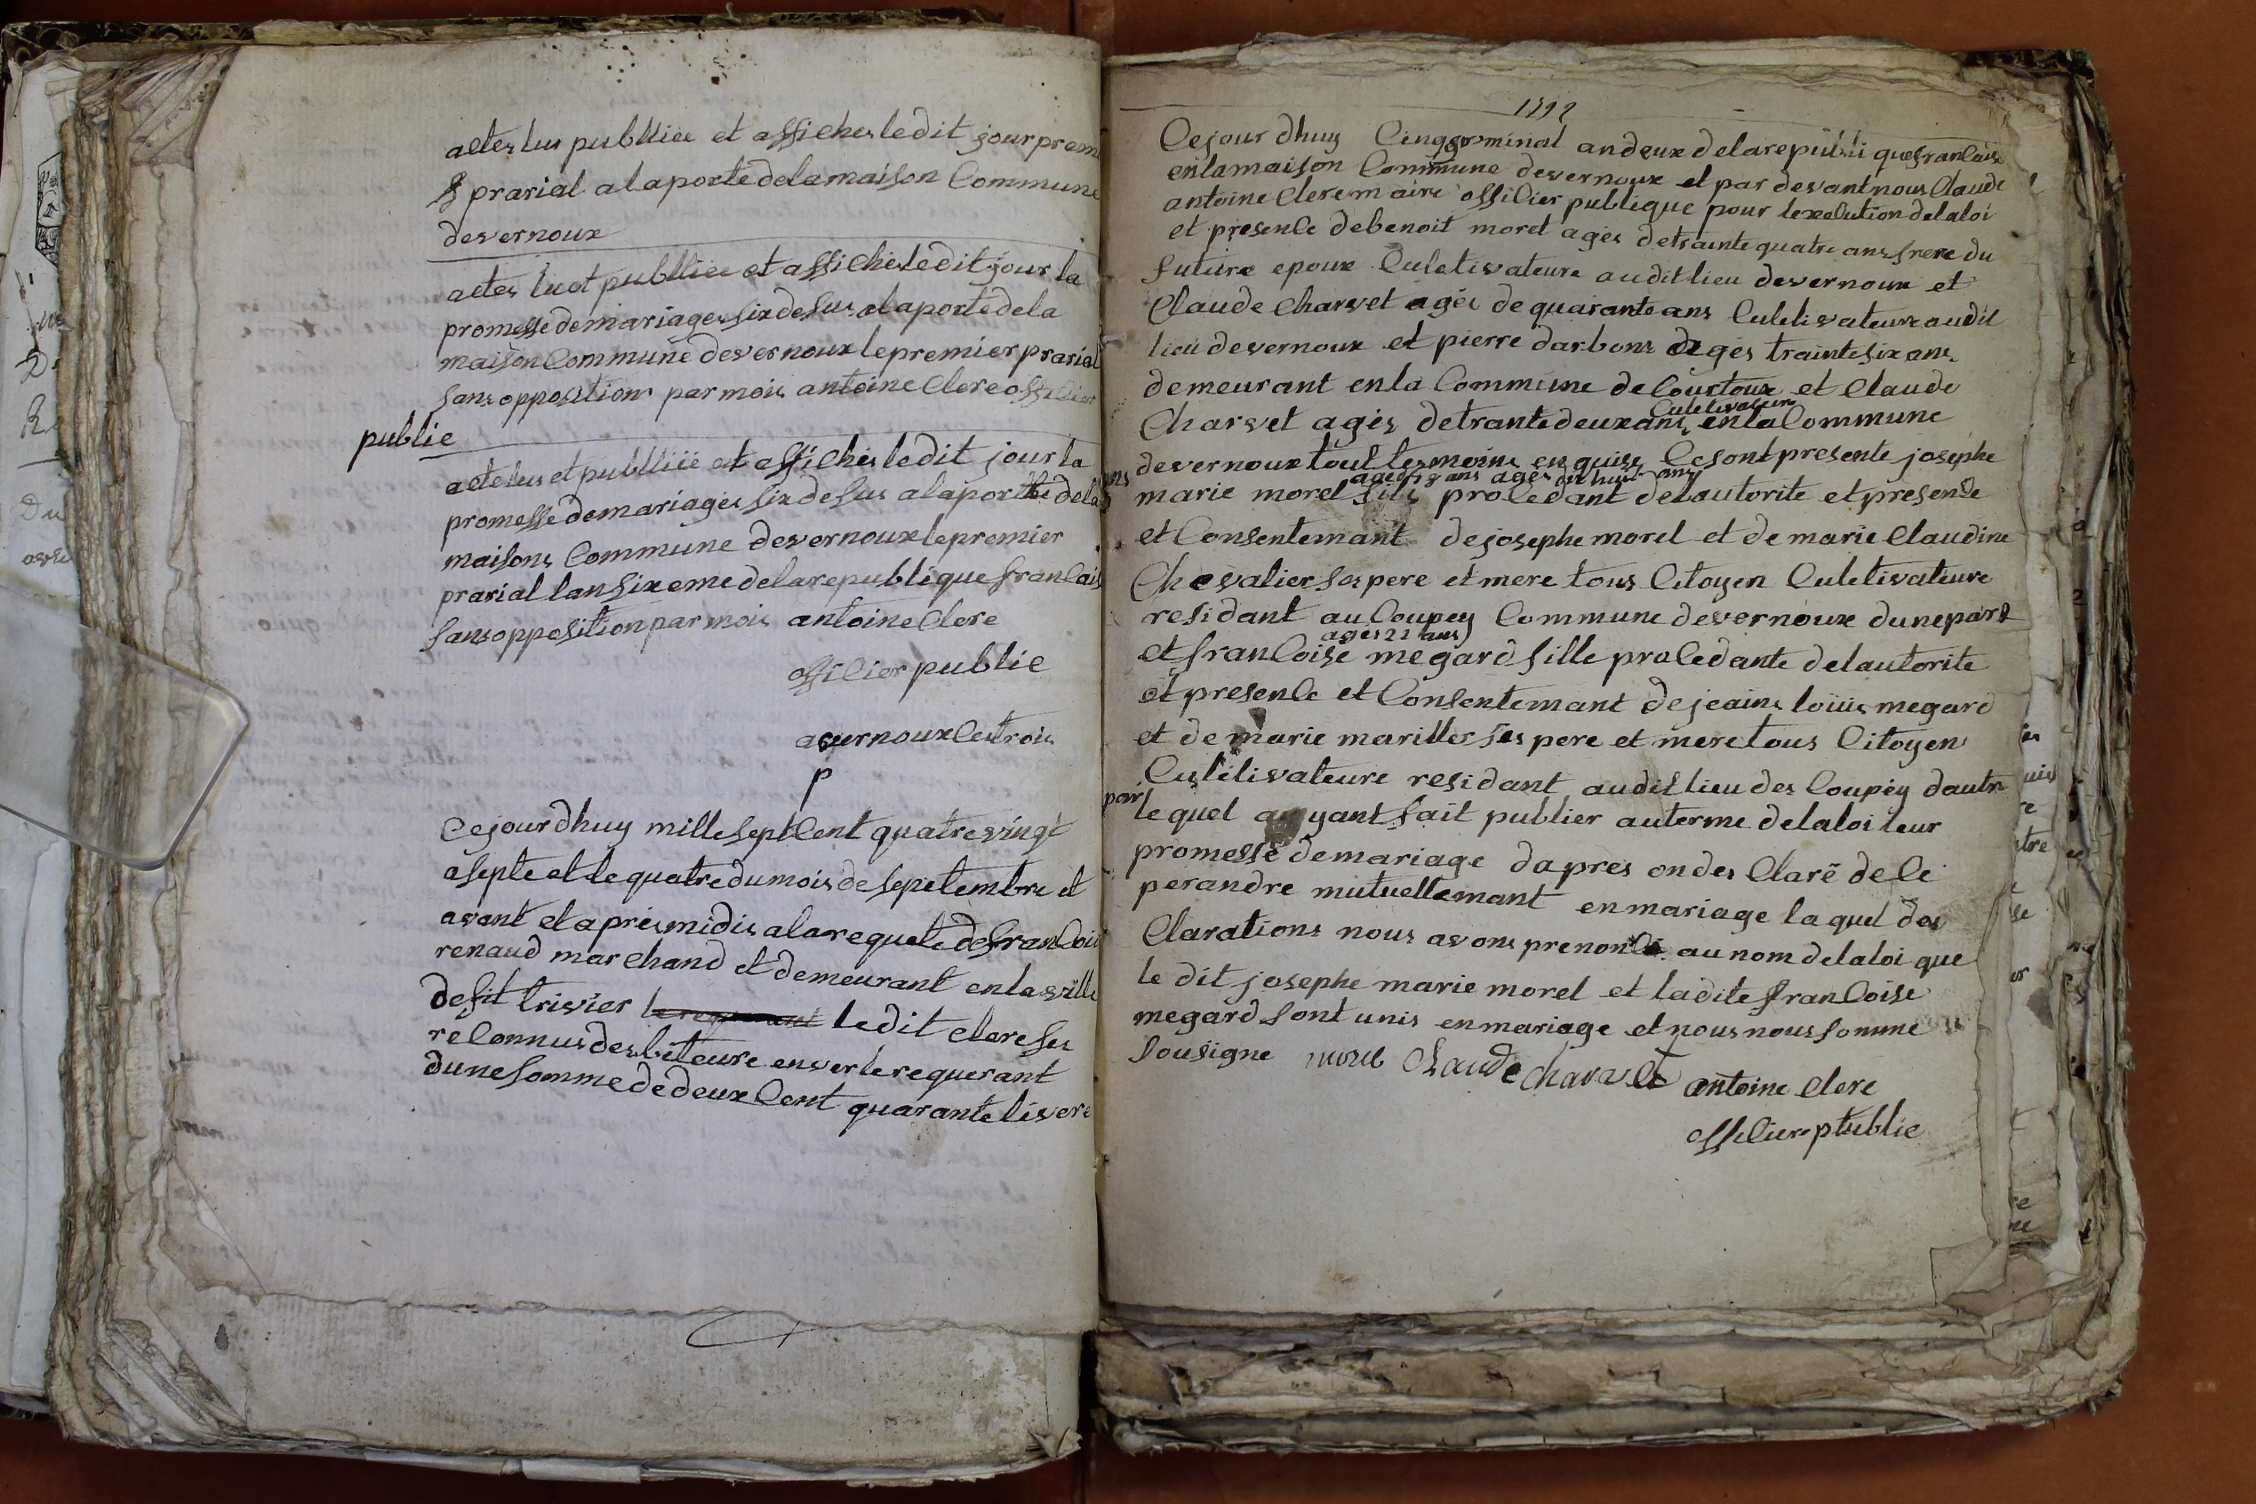 actes lus publliée et affiches ledit jour prem
prarial a la porte de la maison Commune
de vernoux
actes lu et publliée et affichés ledit jour la
promesse de mariages six desus a la porte de la
maison Commune de vernoux le premier prarial
sans opposition par mois antoine Clere officier
public
acte lus et publliéé et affichés ledit jour la
promesse de mariages six desus a la porte de la
maisons Commune de vernoux le premier
prarial lan sixeme de la republique francais
sans opposition par mois antoine Clere
officier public
a vernoux les trois
p
Ce jour dhuy mille sept Cent quatre vingt
a septe et le quatre du mois de sepetembre et
avant et aprés midis a la requete de francois
renaud marchand et demeurant en la ville
de st trivier ledit clere ses
reconnus desbiteure enver le requerant
dune somme de deux Cent quarante livere
1792
Ce jour dhuy Cinq germinal an deux de la republi que francoise
en la maison Commune de vernoux et par devant nous Claude
antoine Clere maire officier publique pour lexecution de la loi
et presence de benoit morel agés de trainte quatre ans frere du
future epoux Culetivateure audit lieu de vernoux et
Claude Charvet agés de quarante ans Culetivateure audit
lieu de vernoux et pierre darbons agés trainte six ans
demeurant en la Commune de Courtoux et Claude
Culetivateur
Charvet agés de trante deux ans en la Commune
de vernoux tout tesmoins en quise Ce sont presente josephe
agés 18 ans agés dix huit ans
marie morel fils procedant de lautorite et presence
et Consentemant de josephe morel et de marie Claudine
Chevalier ses pere et mere tous Citoyen Culetivateure
residant au Coupey Commune de vernoux dune part
agés 21 ans
et francoise megard fille procedante de lautorite
et presence et Consentemant de jeains loüis megard
et de marie mariller ses pere et mere tous Citoyen
Culetivateure residant audit lieu des Coupéy dautre
part
le quel ayant fait publier au terme de la loi leur
promesse de mariage dapres on des Claré de Ce
perandre mutuellemant en mariage la quel des
Clarations nous avons prenoncé au nom de la loi que
le dit josephe marie morel et ladite francoise
megard sont unis en mariage et nous nous somme
sousigne morel Claude Charvet antoine Clere
officiere publie